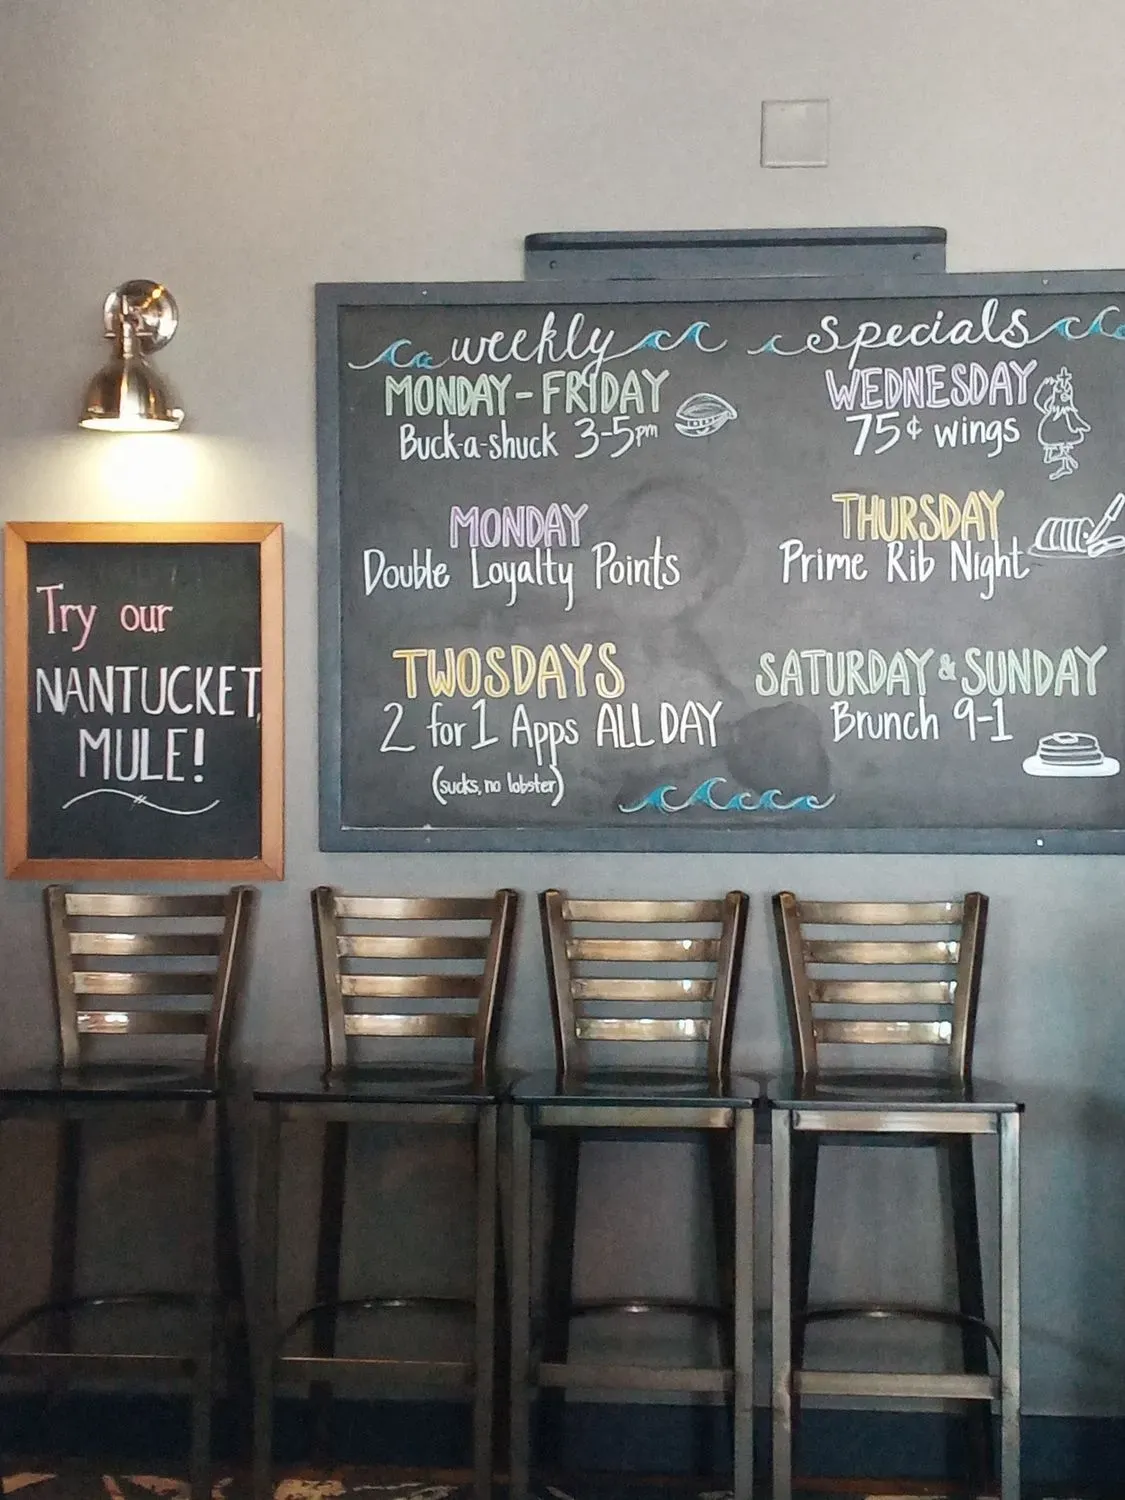 weekly specials
MONDAY-FRIDAY
Buck-a-shuck 3-5pm
MONDAY
Double Loyalty Points
TWOSDAYS
2 for 1 Apps ALL DAY
(sucks, no lobster)
WEDNESDAY
75¢ wings
THURSDAY
Prime Rib Night
SATURDAY & SUNDAY
Brunch 9-1
Try our
NANTUCKET
MULE!